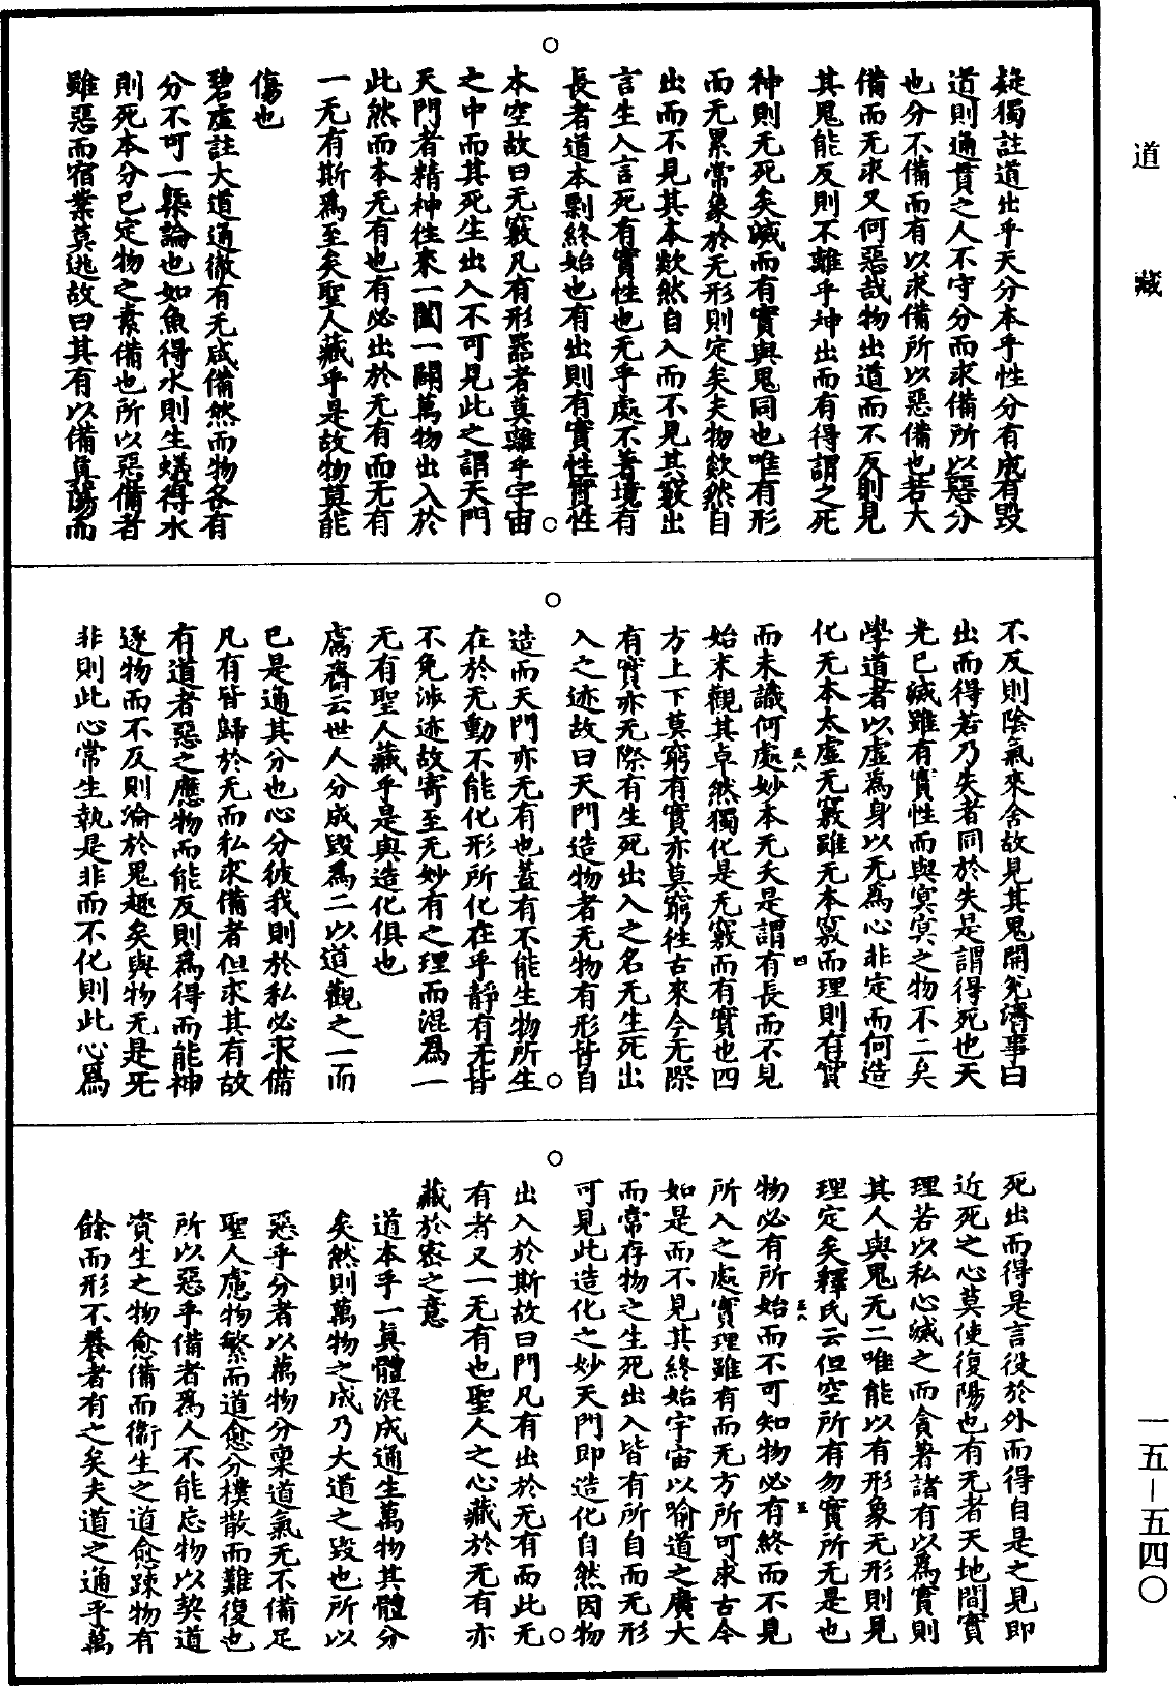 疑獨註道出乎天分本乎性分有成有毀
道則通貫之人不守分而求備所以惡分
也分不備而有以求備所以惡備也若大
備而无求又何惡哉物出道而不反則見
其鬼能反則不離乎坤出而有得謂之死
神則无死矣滅而有實與鬼同也唯有形
而无累常象於无形則定矣夫物欻然自
出而不見其本欻然自入而不見其竅出
言生入言死有實性也无乎處不著境有
長者道本剽終始也有出則有實性實性
本空故曰无竅凡有形器者莫離乎宇宙
之中而其死生出入不可見此之謂天門
天門者精神往來一闔一闢萬物出入於
此然而本无有也有必出於无有而无有
一无有斯為至矣聖人藏乎是故物莫能
傷也
碧虛註大道通徹有无成備然而物各有
分不可一槩論也如魚得水則生蟻得水
則死本分已定物之素備也所以惡備者
雖惡而宿業莫逃故曰其有以備真蕩而
不反則陰氣來舍故見其鬼開兌濟事曰
出而得若乃失者同於失是謂得死也天
光已滅雖有實性而與冥冥之物不二矣
學道者以虛為身以无為心非定而何造
化无本太虛无竅雖无本竅而理則有實
而未識何處妙本无夭是謂有長而不見
始末觀其卓然獨化是无竅而有實也四
方上下莫窮有實亦莫窮徃古來今无際
有實亦无際有生死出入之名无生死出
入之迹故曰天門造物者无物有形皆自
造而天門亦无有也蓋有不能生物所生
在於无動不能化形所化在乎靜有无皆
不免涉迹故寄至无妙有之理而混為一
无有聖人藏乎是與造化俱也
鬳齋云世人分成毀為二以道觀之一而
已是通其分也心分彼我則於私必求備
凡有皆歸於无而私求備者但求其有故
有道者惡之應物而能反則為得而能神
逐物而不反則淪於鬼趣矣與物无是死
非則此心常生執是非而不化則此心為
死出而得是言役於外而得自是之見即
近死之心莫使復陽也有无者天地間實
理若以私心滅之而貪著諸有以為實則
其人與鬼无二唯能以有形象无形則見
理定矣釋氏云但空所有勿實所无是也
物必有所始而不可知物必有終而不見
所入之處實理雖有而无方所可求古今
如是而不見其終始宇宙以喻道之廣大
而常存物之生死出入皆有所自而无形
可見此造化之妙天門即造化自然因物
出入於斯故曰門凡有出於无有而此无
有者又一无有也聖人之心藏於无有亦
藏於密之意
道本乎一真體混成通生萬物其體分
矣然則萬物之成乃大道之毀也所以
惡乎分者以萬物分稟道氣无不備足
聖人慮物繁而道愈分樸散而難復也
所以惡乎備者為人不能忘物以契道
資生之物愈備而衞生之道愈踈物有
餘而形不養者有之矣夫道之通乎萬
道藏
一五—五四〇